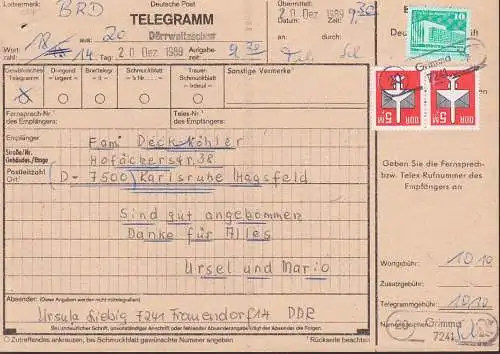 Leitvermerk: BRD
Deutsche Post
TELEGRAMM
Dörrwalltzscher
aus 20
Wort zahl: 18 14 Tag: 20 Dez 1989 Aufgabe- zeit: 9.30
Übermittelt:
20 Dez 1989 9.30
Datum Zeit
An: Von:
10
Grimma
7241
DDR 5M DDR 5M
Gewöhnliches Telegramm
Dringend - urgent -
Brieftelegr. - lt -
Schmuckblatt - lx Nr. -
Trauer- Schmuckblatt - lxdeuil -
Sonstige Vermerke*
Fernsprech-Nr.* des Empfängers:
Telex-Nr.* des Empfängers:
Empfänger: Fam. Deck-Köhler
Straße/Nr. Gebäudeteil/Etage Hofäckerstr. 38
Postleitzahl Ort: D-7500 Karlsruhe Hagsfeld
Geben Sie die Fernsprech-
bzw. Telex-Rufnummer des
Empfängers an
Sind gut angekommen
Danke für Alles
Ursel und Mario
Wortgebühr: 10.10
Zusatzgebühr:
Telegrammgebühr: 10.10
Grimma
7241
Absender: (Diese Angaben werden nicht mittelegrafiert)
Ursula Liebig 7241 Frauendorf 14 DDR
Bei undeutlicher Schrift, unvollständiger Anschrift oder fehlender Absenderangabe trägt der Absender die Folgen.
Zutreffendes ankreuzen, bei Schmuckblatt gewünschte Nummer angeben * Rückseite beachten